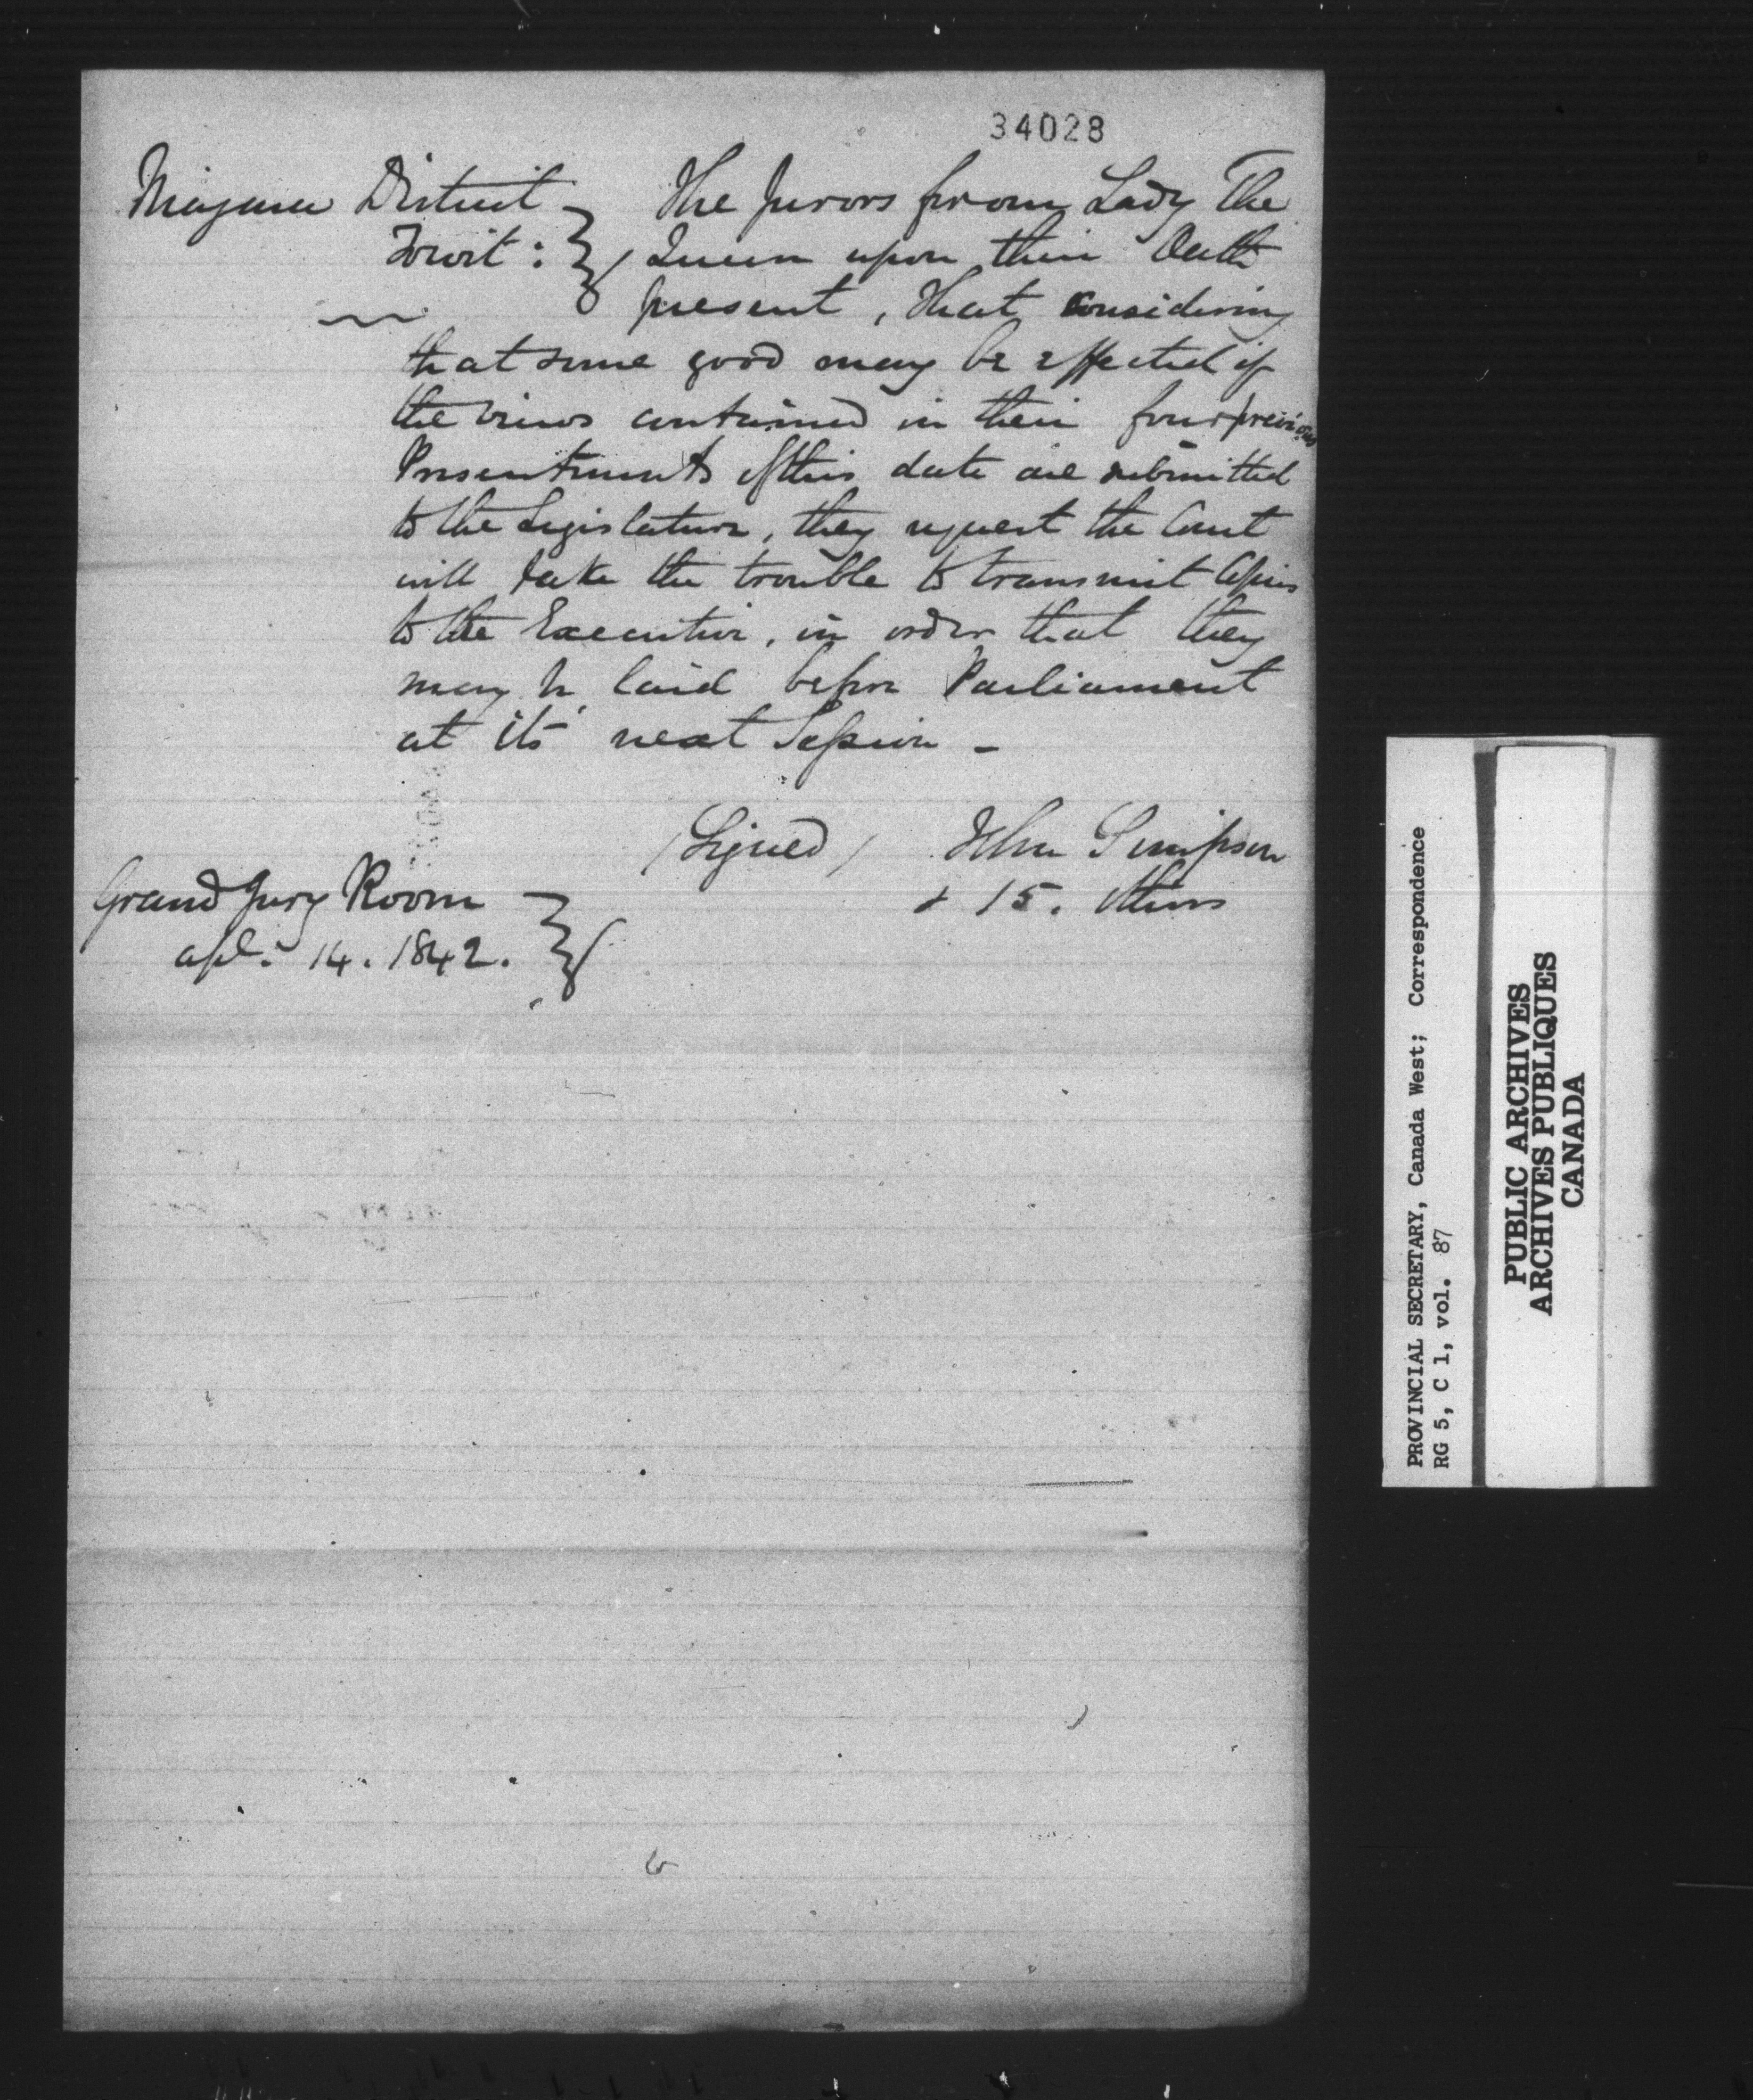 34028
Niagara District } The Jurors for our Lady The
Towit : } Queen upon their Oath
present, that considering
that some good may be effected if
the views contained in their four previous
Presentments of this date are submitted
to the Legislature, they request the Court
will take the trouble to transmit Copies
to the Executive, in order that they
may be laid before Parliament
at its next Session -
(Signed) John Simpson
& 15. others
Grand Jury Room }
apl. 14. 1842. }
PROVINCIAL SECRETARY, Canada West; Correspondence
RG 5, C 1, vol. 87
PUBLIC ARCHIVES
ARCHIVES PUBLIQUES
CANADA